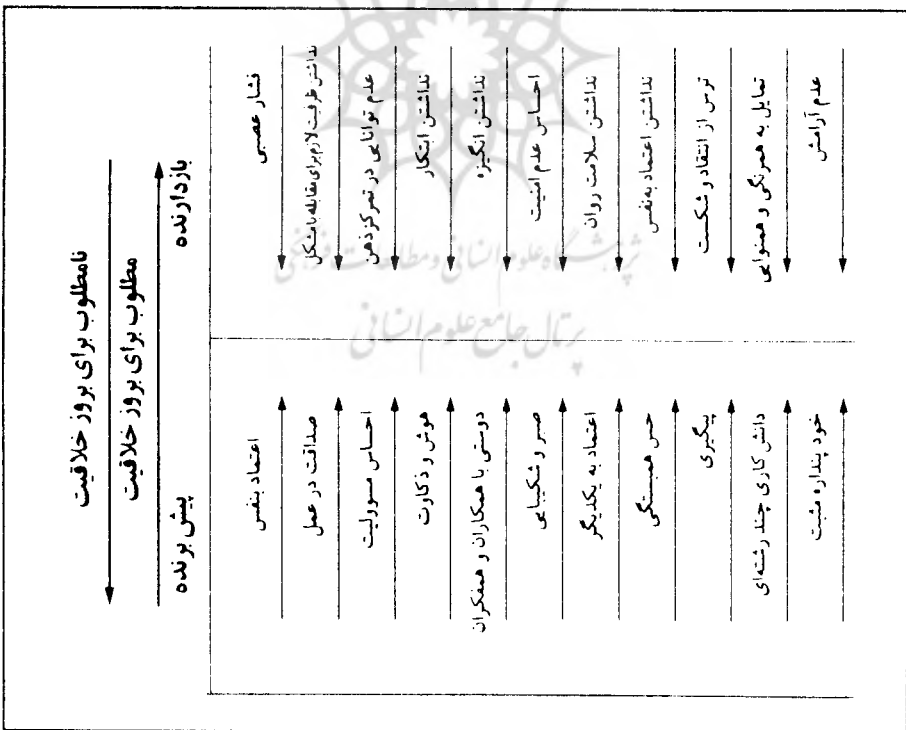 نامطلوب برای بروز خلاقیت
مطلوب برای بروز خلاقیت
بازدارنده
پیش برنده
فشار عصبی
نداشتن ظرفیت لازم برای مقابله با مشکل
عدم توانایی در تمرکز ذهن
نداشتن ابتکار
نداشتن انگیزه
احساس عدم امنیت
نداشتن سلامت روان
نداشتن اعتماد به نفس
ترس از انتقاد و شکست
تمایل به همرنگی و همنوایی
عدم آرامش
اعتماد بنفس
صداقت در عمل
احساس مسوولیت
هوش و ذکاوت
دوستی با همکاران و همفکران
صبر و شکیبایی
اعتماد به یکدیگر
حس همبستگی
پیگیری
دانش کاری چند رشته‌ای
خود پنداره مثبت
پژوهشگاه علوم انسانی و مطالعات فرهنگی
پرتال جامع علوم انسانی